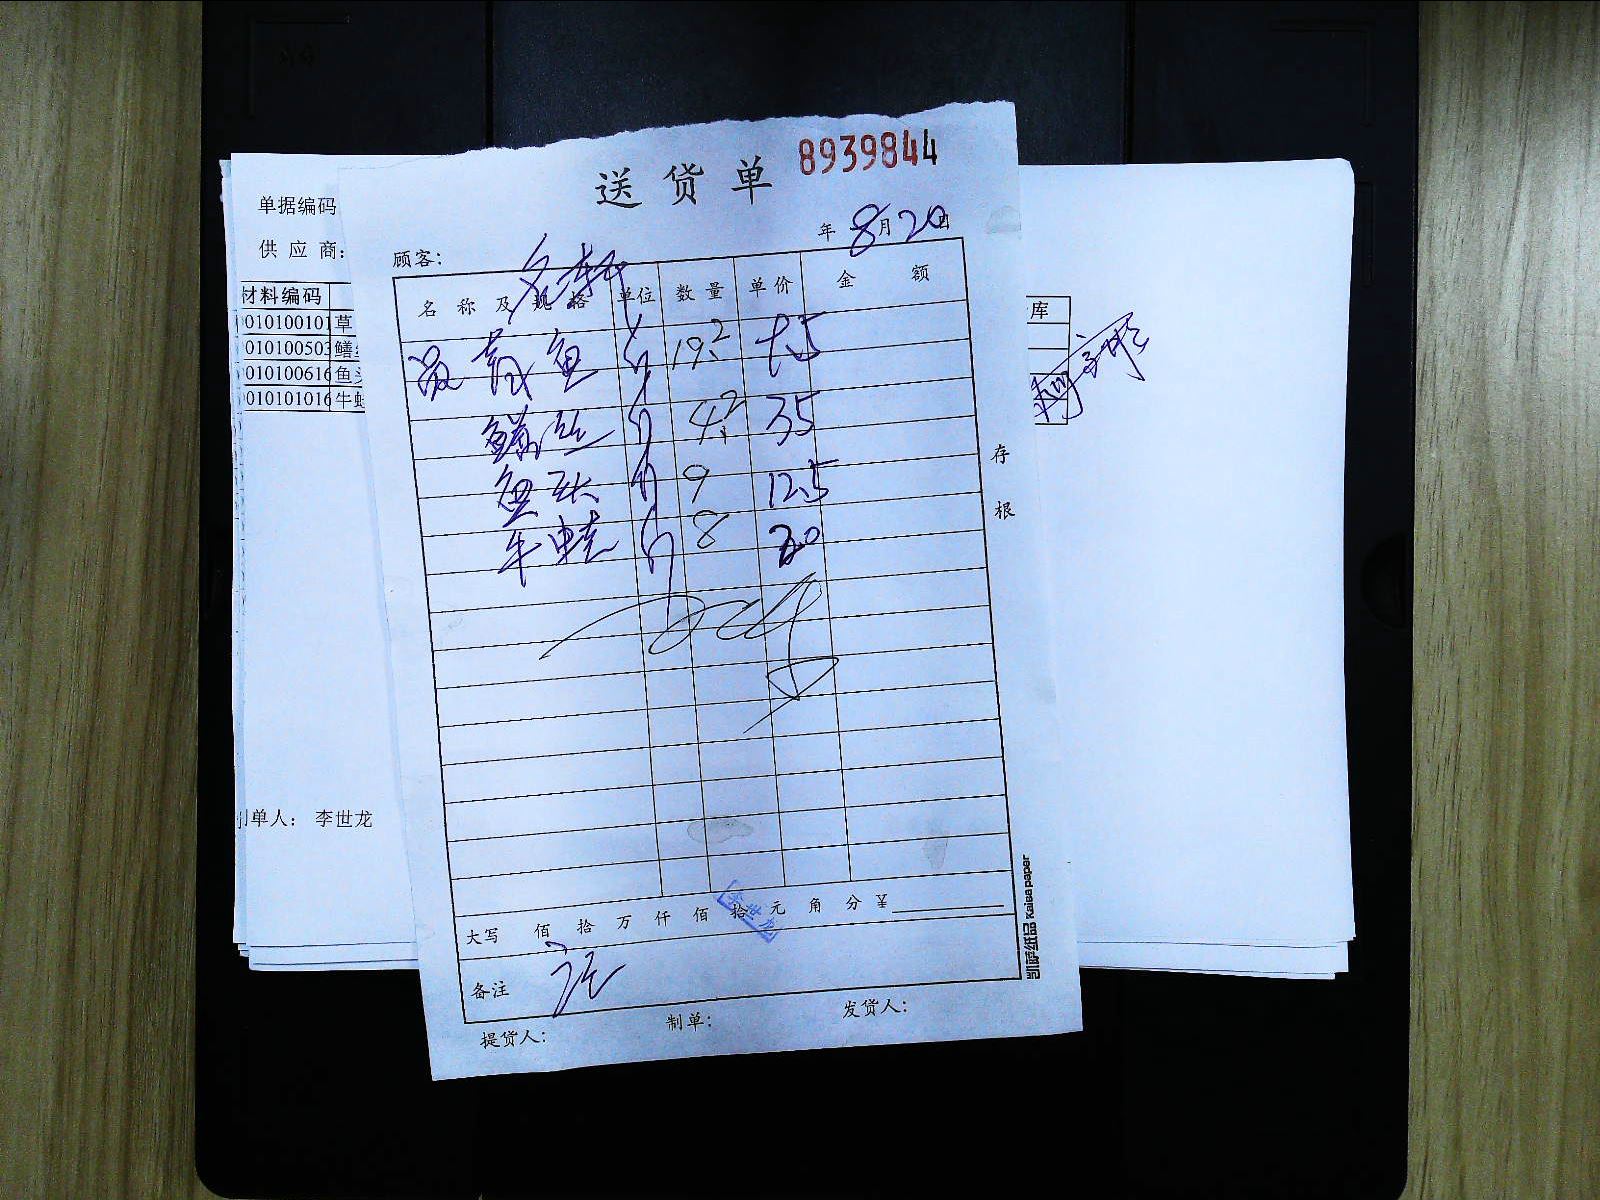 送货单 8939844
年 8月20日
顾客:
名称及规格 单位 数量 单价 金额
鱼 斤 19.2 7.5
鳝丝 斤 4.2 35
鱼头 斤 9 12.5
牛蛙 斤 8 20
存根
大写 佰 拾 万 仟 佰 拾 元 角 分 ¥
李世龙
备注
提货人: 制单: 发货人:
凯萨纸品 Kaisa paper
单据编码
供应商:
材料编码
010100101 草
010100503 鳝
010100616 鱼头
010101016 牛蛙
库
制单人: 李世龙